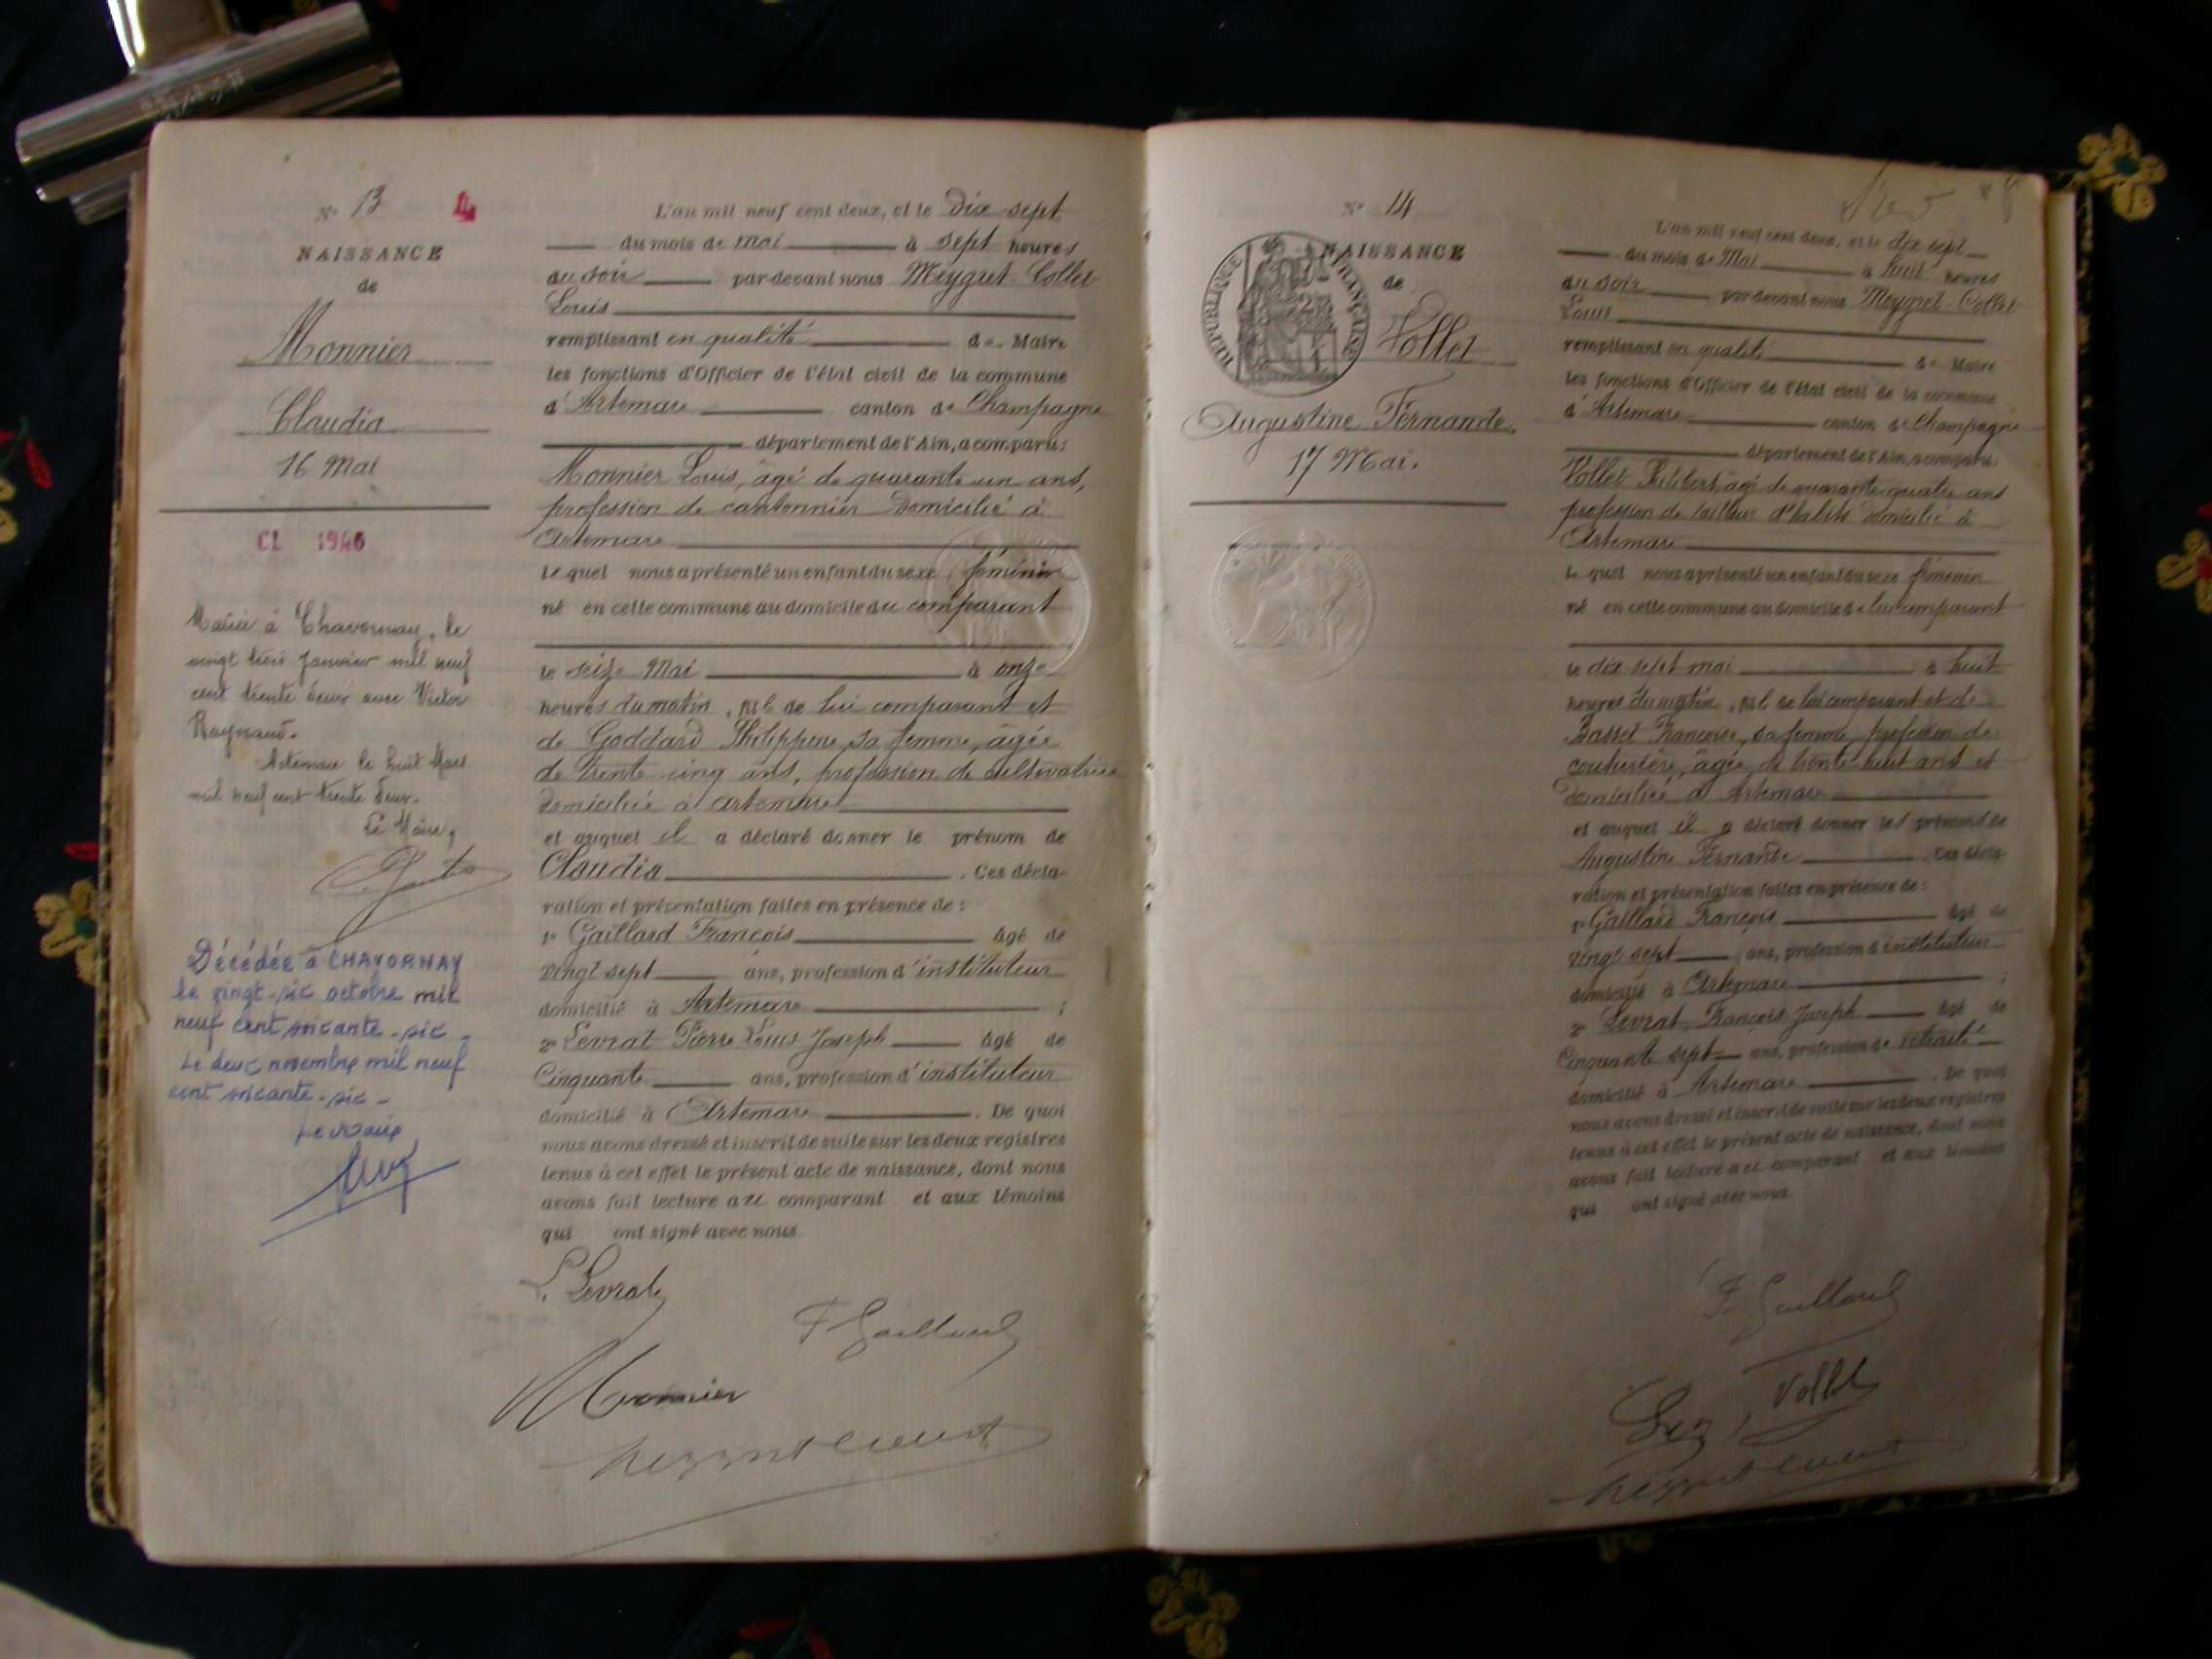 N° 13
4
NAISSANCE
de
Monnier
Claudia
16 Mai
CL 1946
Mariée à Chavornay, le
vingt trois Janvier mil neuf
cent trente deux avec Victor
Raynaud.
Artemare le huit Mars
mil neuf cent trente deux.
Le Maire,
Décédée à CHAVORNAY
le vingt-six octobre mil
neuf cent soixante-six -
Le deux novembre mil neuf
cent soixante-six -
Le Maire
L'an mil neuf cent deux, et le dix sept
du mois de mai à sept heures
du soir par-devant nous Meygret-Collet
Louis
remplissant en qualité de Maire
les fonctions d'Officier de l'état civil de la commune
d'Artemare canton de Champagne
département de l'Ain, a comparu:
Monnier Louis, âgé de quarante un ans,
profession de cantonnier domicilié à
Artemare
lequel nous a présenté un enfant du sexe féminin
né en cette commune au domicile du comparant
le seize Mai à onze
heures du matin, fille de lui comparant et
de Goddard Philippine, sa femme, âgée
de trente cinq ans, profession de cultivatrice
domiciliée à Artemare
et auquel il a déclaré donner le prénom de
Claudia. Ces décla-
ration et présentation faites en présence de:
1° Gaillard François âgé de
vingt sept ans, profession d'instituteur
domicilié à Artemare ;
2° Levrat Pierre Louis Joseph âgé de
Cinquante ans, profession d'instituteur
domicilié à Artemare. De quoi
nous avons dressé et inscrit de suite sur les deux registres
tenus à cet effet le présent acte de naissance, dont nous
avons fait lecture au comparant et aux témoins
qui ont signé avec nous.
L. Levrat
F. Gaillard
Monnier
N° 14
NAISSANCE
de
REPUBLIQUE FRANÇAISE
Vollet
Augustine Fernande
17 Mai.
L'an mil neuf cent deux, et le dix sept
du mois de Mai à huit heures
du soir par-devant nous Meygret-Collet
Louis
remplissant en qualité de Maire
les fonctions d'Officier de l'état civil de la commune
d'Artemare canton de Champagne
département de l'Ain, a comparu:
Vollet Philibert, âgé de quarante-quatre ans
profession de tailleur d'habits domicilié à
Artemare
lequel nous a présenté un enfant du sexe féminin
né en cette commune au domicile de lui comparant
le dix sept mai à huit
heures du matin, fille de lui comparant et de
Basset Françoise, sa femme, profession de
couturière, âgée de trente-huit ans et
domiciliée à Artemare
et auquel il a déclaré donner les prénoms de
Augustine Fernande. Ces décla-
ration et présentation faites en présence de:
1° Gaillard François âgé de
vingt sept ans, profession d'instituteur
domicilié à Artemare ;
2° Levrat François Joseph âgé de
Cinquante sept ans, profession de retraité
domicilié à Artemare. De quoi
nous avons dressé et inscrit de suite sur les deux registres
tenus à cet effet le présent acte de naissance, dont nous
avons fait lecture au comparant et aux témoins
qui ont signé avec nous.
F. Gaillard
Vollet